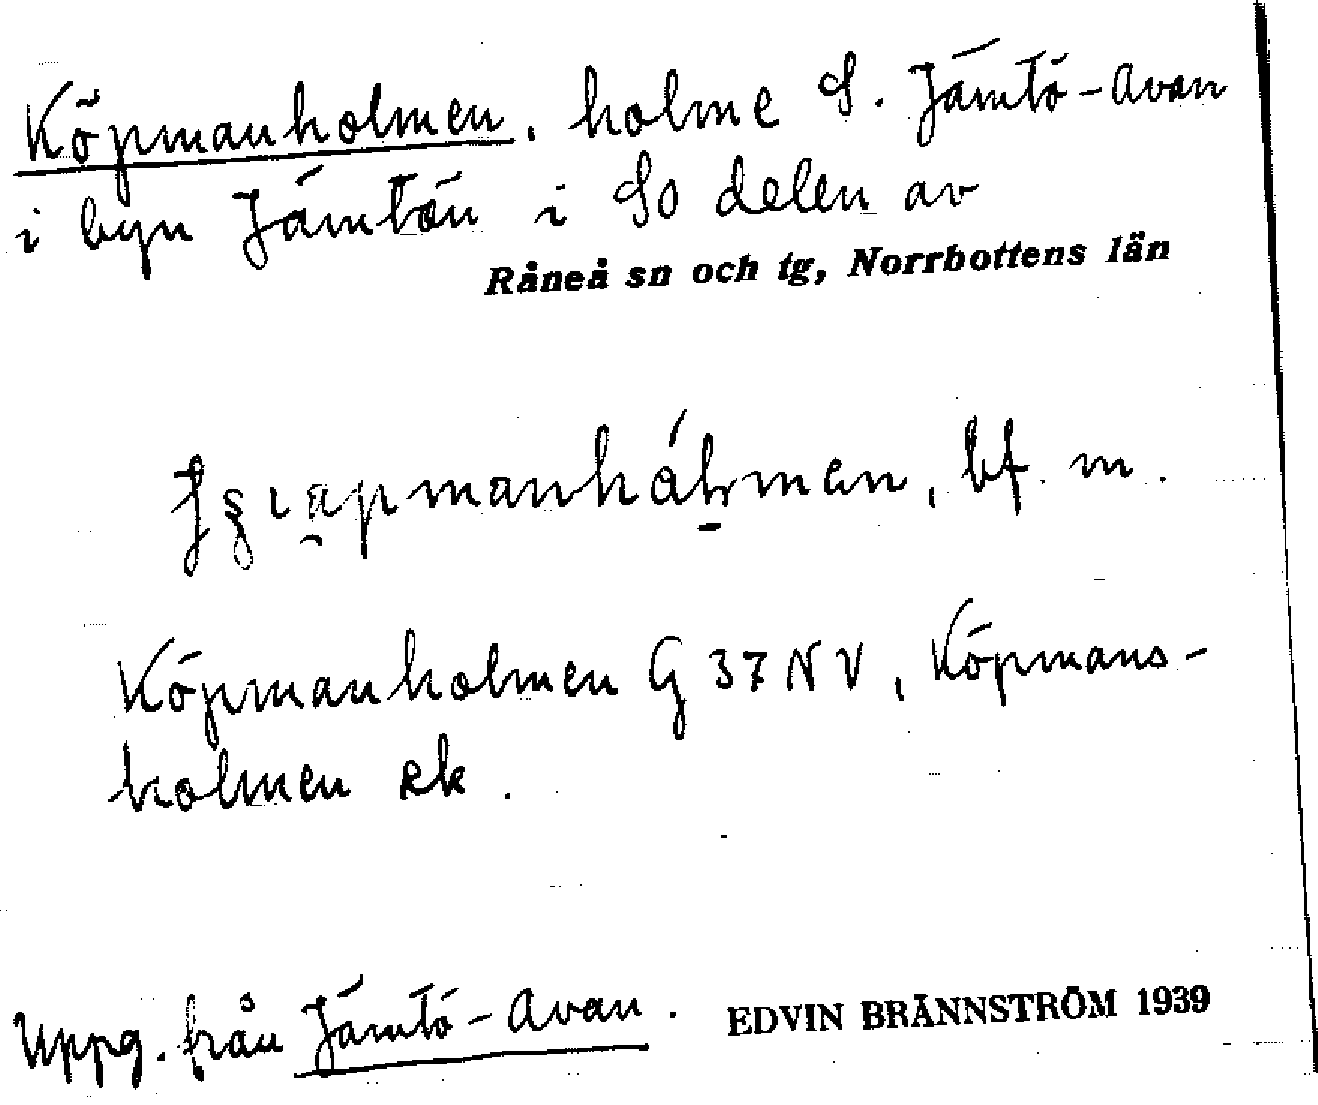 Köpmanholmen, holme S. Jämtö-Avan
i byn Jämtön i SO delen av
Råneå sn och tg, Norrbottens län
bf. m.
Köpmanholmen G 37 NV, Köpmans-
holmen Rk.
Uppg. från Jämtö-Avan. EDVIN BRÄNNSTRÖM 1939